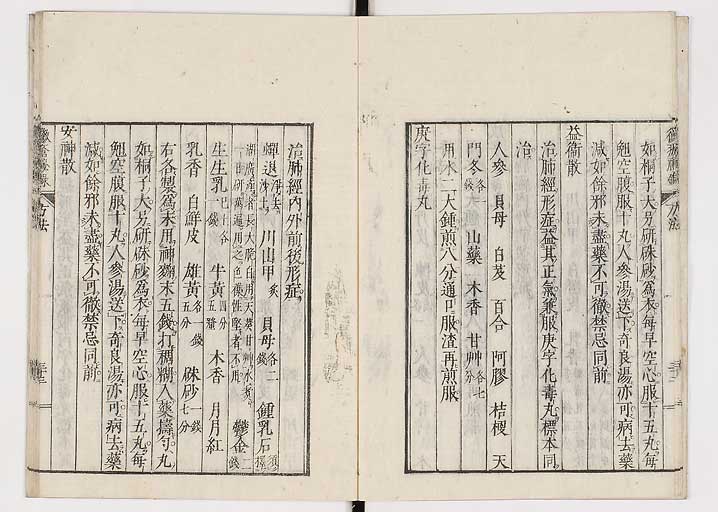 如桐子大另研硃砂爲衣每早空心服十五丸每
匏空腹服十丸人參湯送下奇良湯亦可病去藥
減如餘邪未盡藥不可徹禁忌同前
益衛散
治肺經形症益其正氣兼服庚字化毒丸標本同
治
人參 貝母 白芨 百合 阿膠 桔梗 天
門冬各錢 山藥 木香 甘艸各七分
用水二大鍾煎八分通口服渣再煎服
庚字化毒丸
治肺經內外前後形症
蟬退淨洗去土 川山甲炙 貝母各二錢 鍾乳石
鬱金二錢
生生乳七分上各一錢 牛黃四分五釐 木香 月月紅
乳香 白鮮皮 雄黃各一錢五分 硃砂一錢七分
右各製爲末用神麴末五錢打稠糊入藥擣勻丸
如桐子大另研硃砂爲衣每早空心服十五丸每
匏空腹服十丸人參湯送下奇良湯亦可病去藥
減如餘邪未盡藥不可徹禁忌同前
安神散
方法